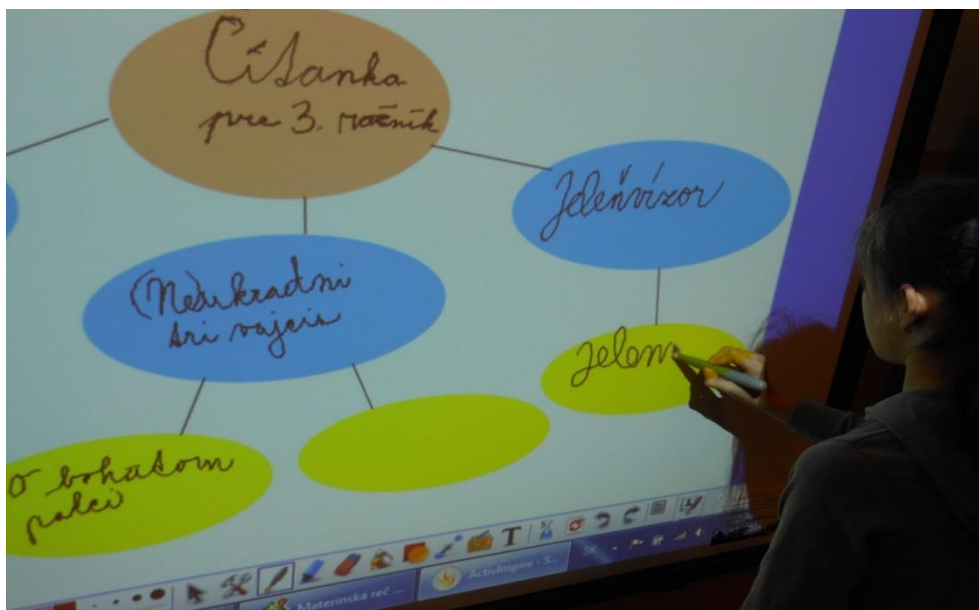 Čítanka
pre 3. ročník
Jeleňvízor
(Ne)ukradni
tri vajcia
jelen
O bohatom
palci
T
SK
Materinská reč ...
ActivInspire - S...